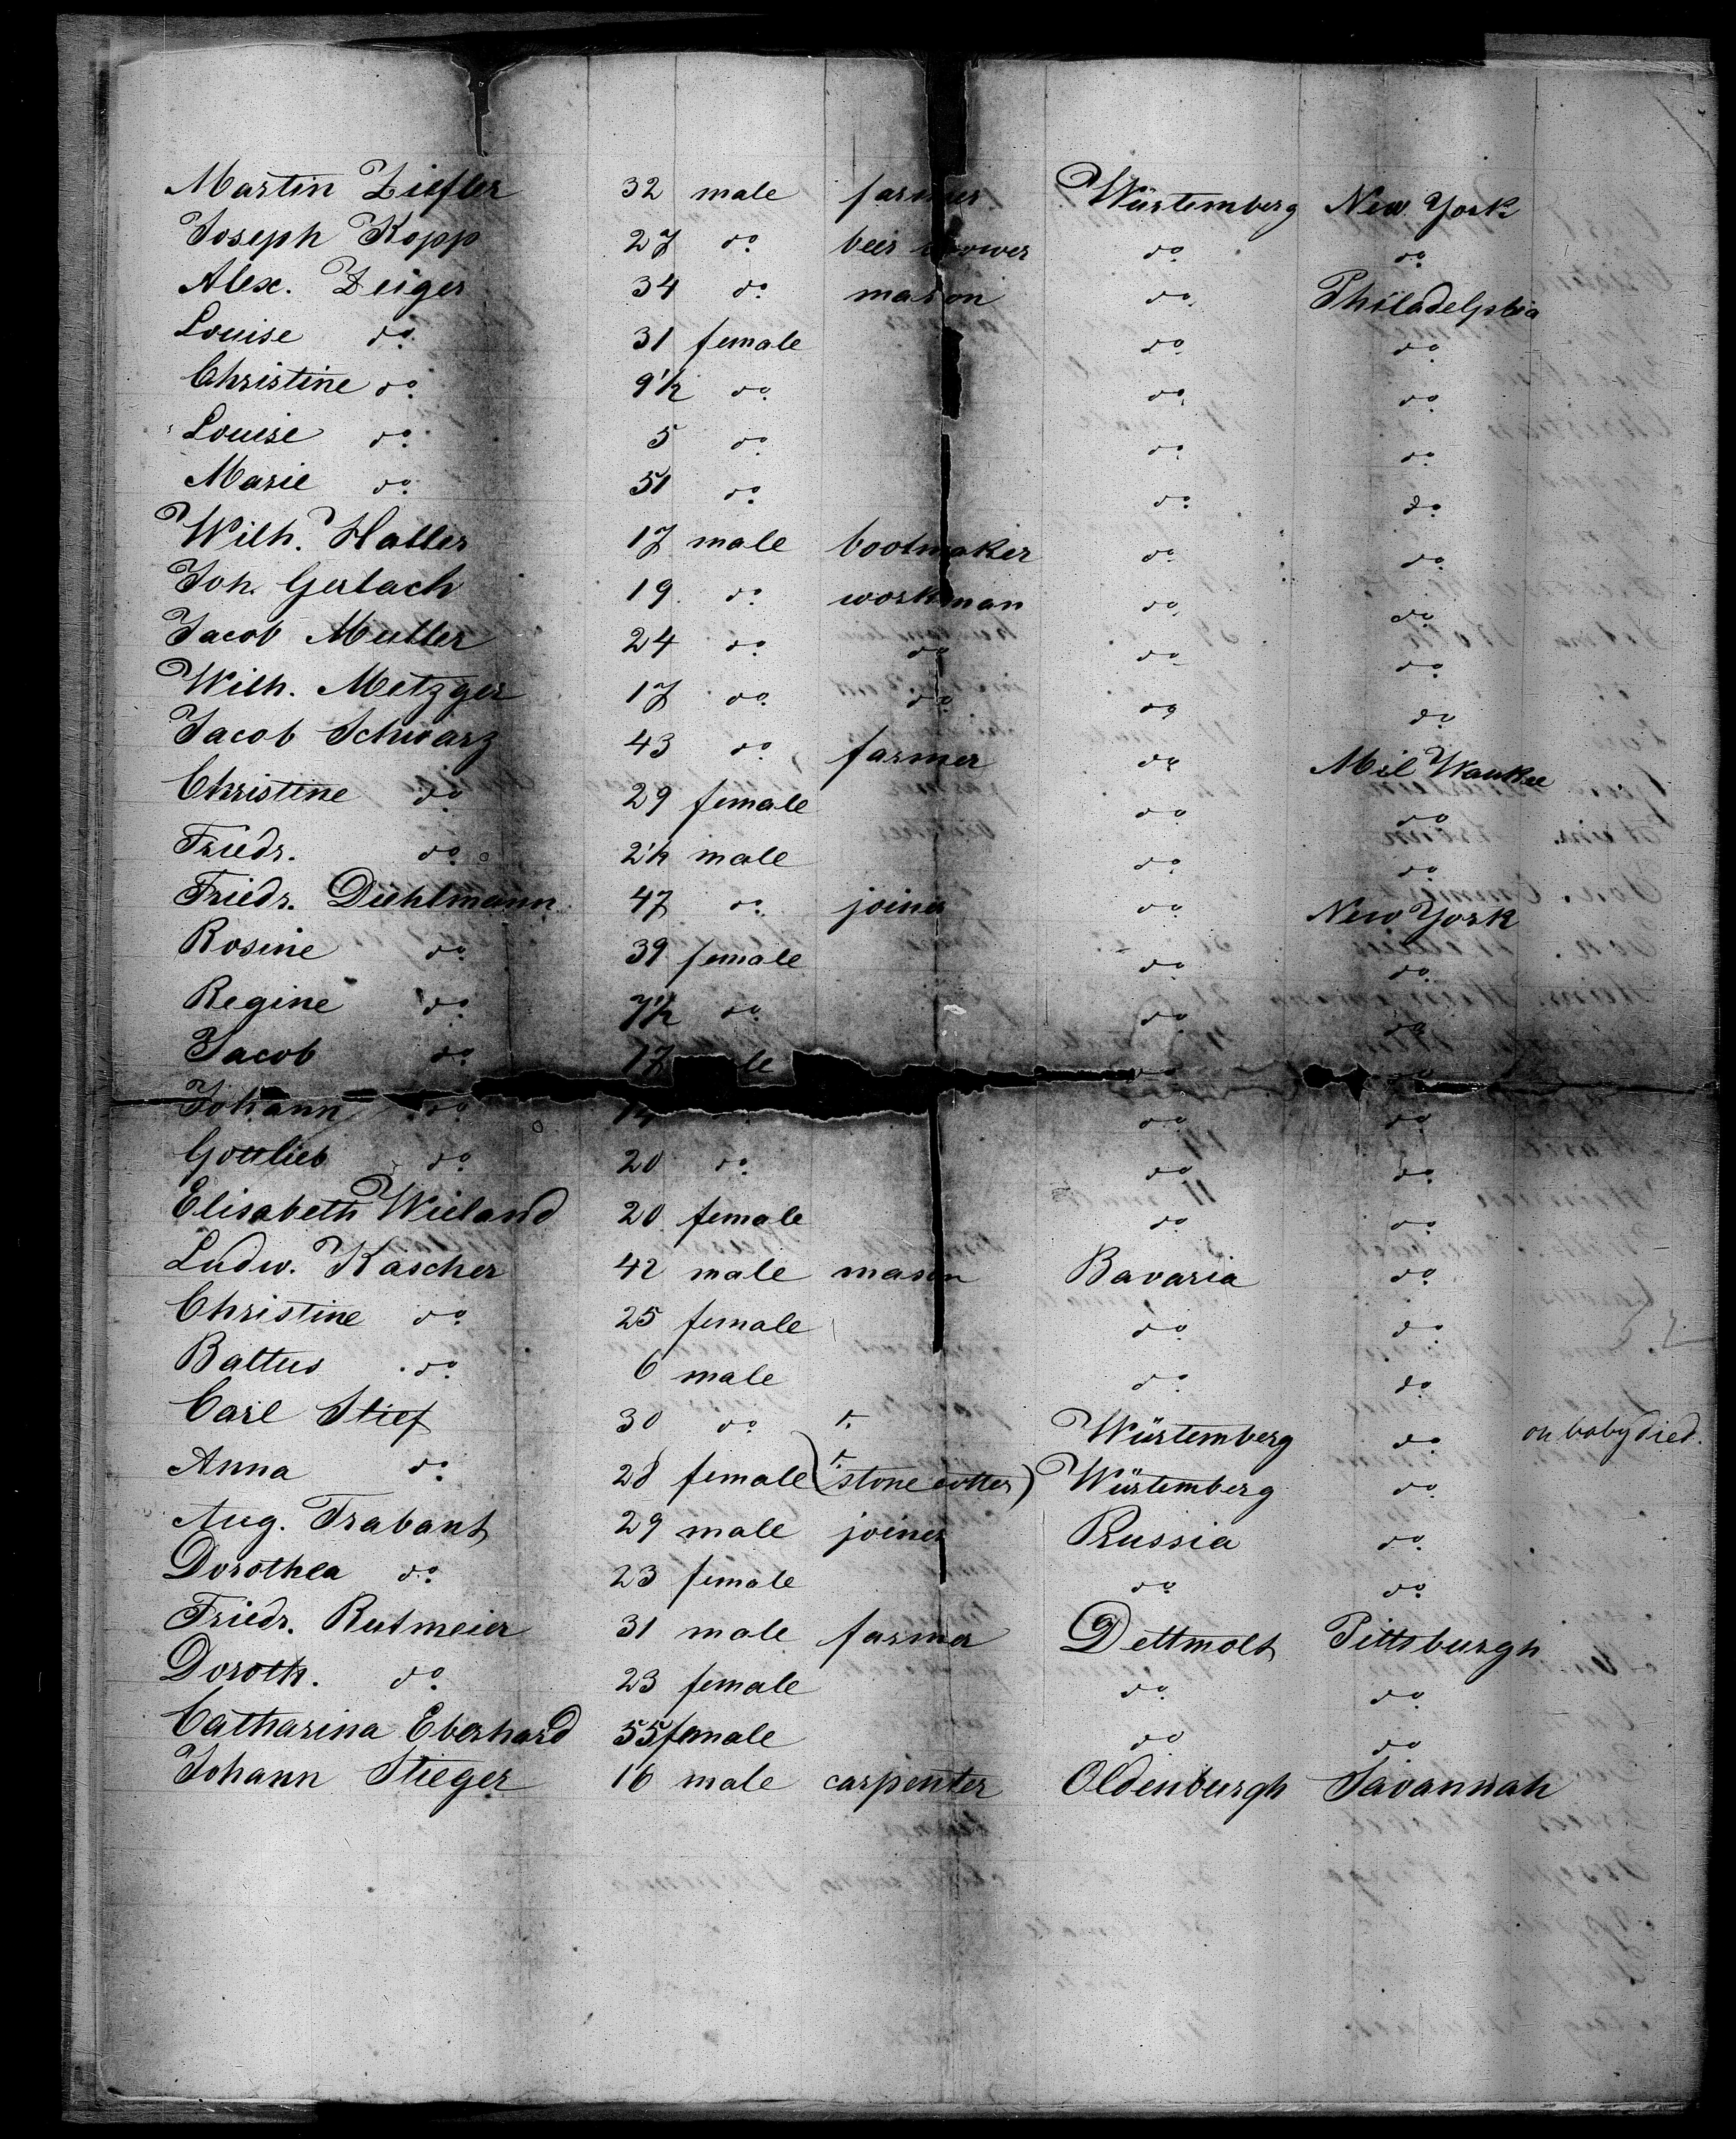 Martin Ziefler 32 male farmer Würtemberg New York
Joseph Kopp 27 do. beer brower do. do.
Alex. Zeiger 34 do. mason do. Philadelphia
Louise do. 31 female do. do.
Christine do. 9 1/2 do. do. do.
Louise do. 5 do. do. do.
Marie do. 51 do. do. do.
Wilh. Haller 17 male bootmaker do. do.
Joh. Gerlach 19 do. workman do. do.
Jacob Muller 24 do. do. do. do.
Wilh. Metzger 17 do. do. do. do.
Jacob Schwarz 43 do. farmer do. Mil Waukee
Christine do. 29 female do. do.
Friedr. do. 2 1/2 male do. do.
Friedr. Diehlmann 47 do. joiner do. New York
Rosine do. 39 female do. do.
Regine do. 7 1/2 do. do. do.
Jacob do. 17 do. do.
Johann do. do. do.
Gottlieb do. 20 do. do. do.
Elisabeth Wieland 20 female do. do.
Ludw. Kascher 42 male mason Bavaria do.
Christine do. 25 female do. do.
Baltus do. 6 male do. do.
Carl Stief 30 do. Würtemberg do. on baby died.
Anna do. 28 female (stone cotter) Würtemberg do.
Aug. Trabant 29 male joiner Prussia do.
Dorothea do. 23 female do. do.
Friedr. Rutmeier 31 male farmer Dettmolt Pittsburgh
Doroth. do. 23 female do. do.
Catharina Eberhard 55 female do. do.
Johann Stieger 16 male carpenter Oldenburgh Savannah